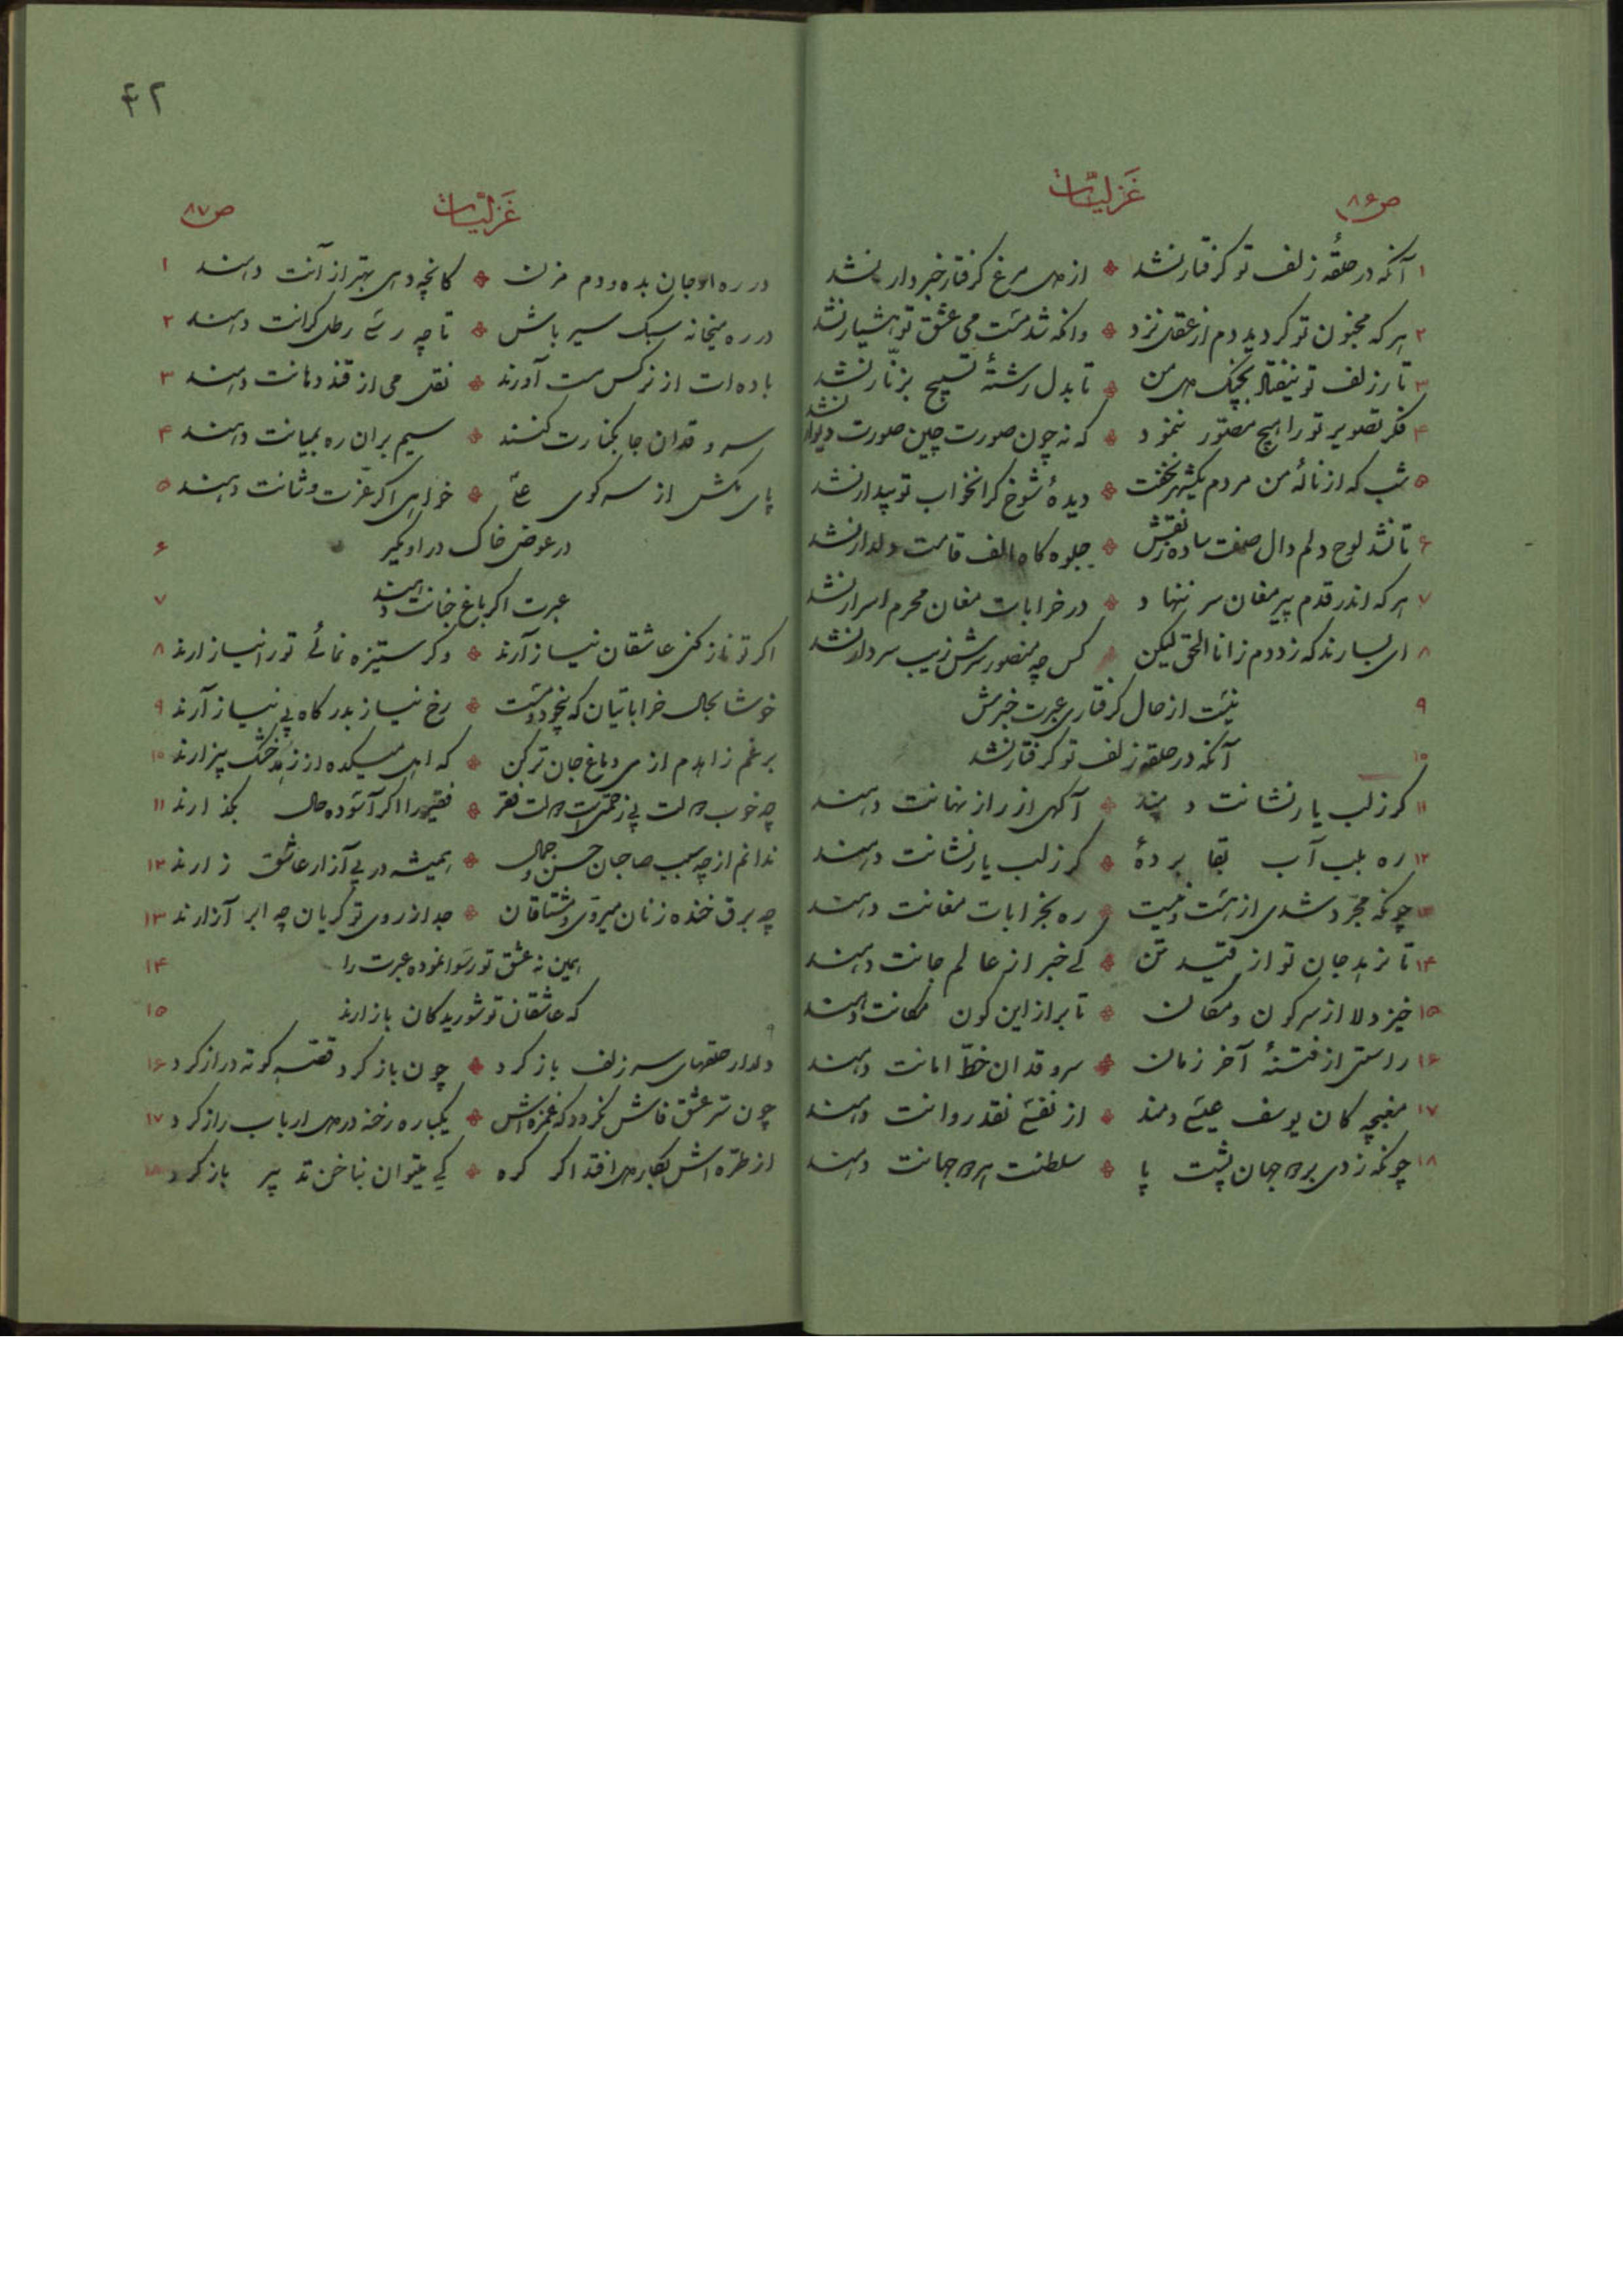 ص۸۶
غزلیّات
۱ آنکه در حلقهٔ زلف تو گرفتار نشد ٭ از دل مرغ گرفتار خبردار نشد
۲ هر که مجنون تو گردید دم از عقل نزد ٭ وانکه شد مست می عشق تو هشیار نشد
۳ تا رزلف تو نیفتاد بچنگ دل من ٭ تا بدل رشتهٔ تسبیح بزنّار نشد
۴ فکر تصویر تو را هیچ مصوّر ننمود ٭ که نه چون صورت چین صورت دیوار نشد
۵ شب که از نالهٔ من مردم یکشهر نخفت ٭ دیدهٔ شوخ گرانخواب تو بیدار نشد
۶ تا نشد لوح دلم دال صفت ساده ز نقش ٭ جلوه گاه الف قامت دلدار نشد
۷ هر که اندر قدم پیر مغان سر ننهاد ٭ در خرابات مغان محرم اسرار نشد
۸ ای بسا رند که زد دم ز انا الحق لیکن ٭ کس چه منصور سرش زیب سر دار نشد
۹ نیست از حال گرفتاری عبرت خبرش
۱۰ آنکه در حلقه زلف تو گرفتار نشد
۱۱ گر ز لب یار نشانت دهند ٭ آگهی از راز نهانت دهند
۱۲ ره بلب آب بقا بردهٔ ٭ گر ز لب یار نشانت دهند
۱۳ چونکه مجرّد شدی از هست و نیست ٭ ره بخرابات مغانت دهند
۱۴ تا نرهد جان تو از قید تن ٭ کی خبر از عالم جانت دهند
۱۵ خیز دلا از سر کون و مکان ٭ تا بر از این کون مکانت دهند
۱۶ راستی از فتنهٔ آخر زمان ٭ سرو قدان خطّ امانت دهند
۱۷ مغبچه کان یوسف عیسی دمند ٭ از نفسی نقد روانت دهند
۱۸ چونکه زدی بر دو جهان پشت پا ٭ سلطنت هر دو جهانت دهند
۴۲
غزلیّات
ص۸۷
در ره او جان بده و دم مزن ٭ کانچه دهی بهتر از آنت دهند ۱
در ره میخانه سبک سیر باش ٭ تا چه رسی رطل گرانت دهند ۲
باده ات از نرگس مست آورند ٭ نقل می از قند دهانت دهند ۳
سرو قدان جا بکنارت کنند ٭ سیم بران ره بمیانت دهند ۴
پای مکش از سر کوی علی ٭ خواهی اگر عزّت و شانت دهند ۵
در عوض خاک در او مگیر ۶
عبرت اگر باغ جنانت دهند ۷
اگر تو ناز کنی عاشقان نیاز آرند ٭ وگر ستیزه نمائی تو را نیاز آرند ۸
خوشا بحال خراباتیان که بیخود و مست ٭ رخ نیاز بدرگاه بی نیاز آرند ۹
برغم زاهدم از می دماغ جان تر کن ٭ که اهل میکده از زهد خشک بیزارند ۱۰
چه خوب دولت بی زحمتی است دولت فقر ٭ فقیر را اگر آسوده حال بگذارند ۱۱
ندانم از چه سبب صاحبان حسن و جمال ٭ همیشه در پی آزار عاشق زارند ۱۲
چه برق خنده زنان میروی و مشتاقان ٭ جدا ز روی تو گریان چه ابر آزارند ۱۳
همین نه عشق تو رسوا نموده عبرت را ۱۴
که عاشقان تو شوریدگان بازارند ۱۵
دلدار حلقهای سر زلف باز کرد ٭ چون باز کرد قصّه کوته دراز کرد ۱۶
چون سرّ عشق فاش نگردد که غمزه اش ٭ یکباره رخنه در دل ارباب راز کرد ۱۷
از طرّه اش بکار دل افتد اگر گره ٭ کی میتوان بناخن تدبیر باز کرد ۱۸